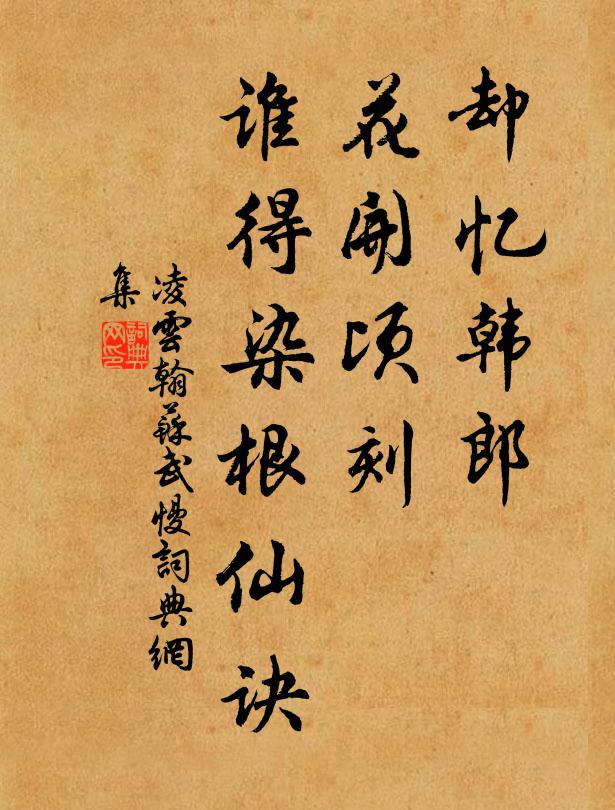 却忆韩郎
花開顷刻
谁得染根仙诀
凌雲翰蘇武慢詞典網
集
詞典
网印